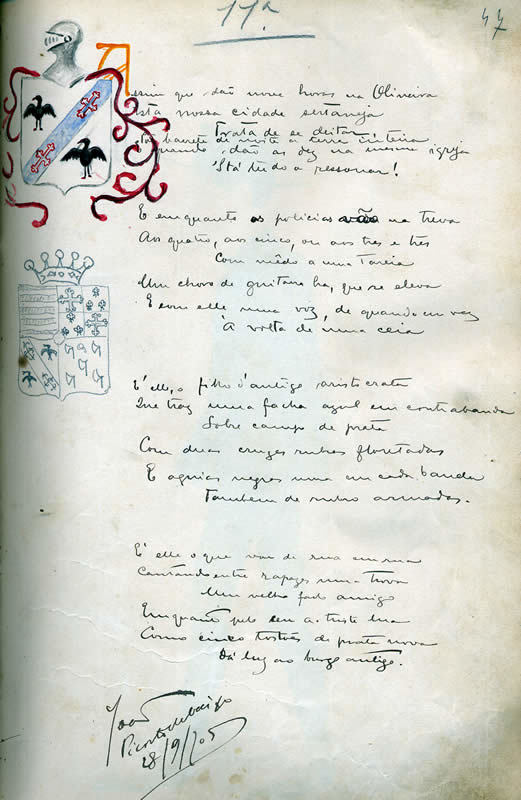 11ª
47
Assim que dão nove horas na Oliveira
Esta nossa cidade sertaneja
Trata de se deitar
E quando dão as dez na mesma igreja
'Stá tudo a ressonar!
E emquanto os policias vão na treva
Aos quatro, aos cinco, ou aos tres e tres
Com mêdo a uma Tareia
Um choro de guitarra ha, que se eleva
E com elle uma voz, de quando em vez
'A volta de uma ceia
E' elle, o filho d'antigo aristocrata
Que traz uma facha azul em contrabanda
Sobre campo de prata
Com duas cruzes rubras floretadas
E aguias negras uma em cada banda
Tambem de rubro armadas.
E' elle o que vae de rua em rua
Cantando entre rapazes uma trova
Um velho fado amigo
Emquanto pelo ceu a triste lua
Como cinco tostões de prata nova
Dá luz ao burgo antigo.
João
28/9/905